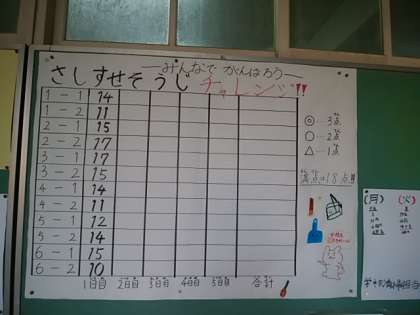 ―みんなで がんばろう―
さしすせそうじ チャレンジ!!
1-1 14
1-2 11
2-1 15
2-2 17
3-1 17
3-2 15
4-1 14
4-2 11
5-1 12
5-2 14
6-1 15
6-2 10
1日目 2日目 3日目 4日目 5日目 合計
◎…3点
○…2点
△…1点
満点は18点!!
(月) (火)